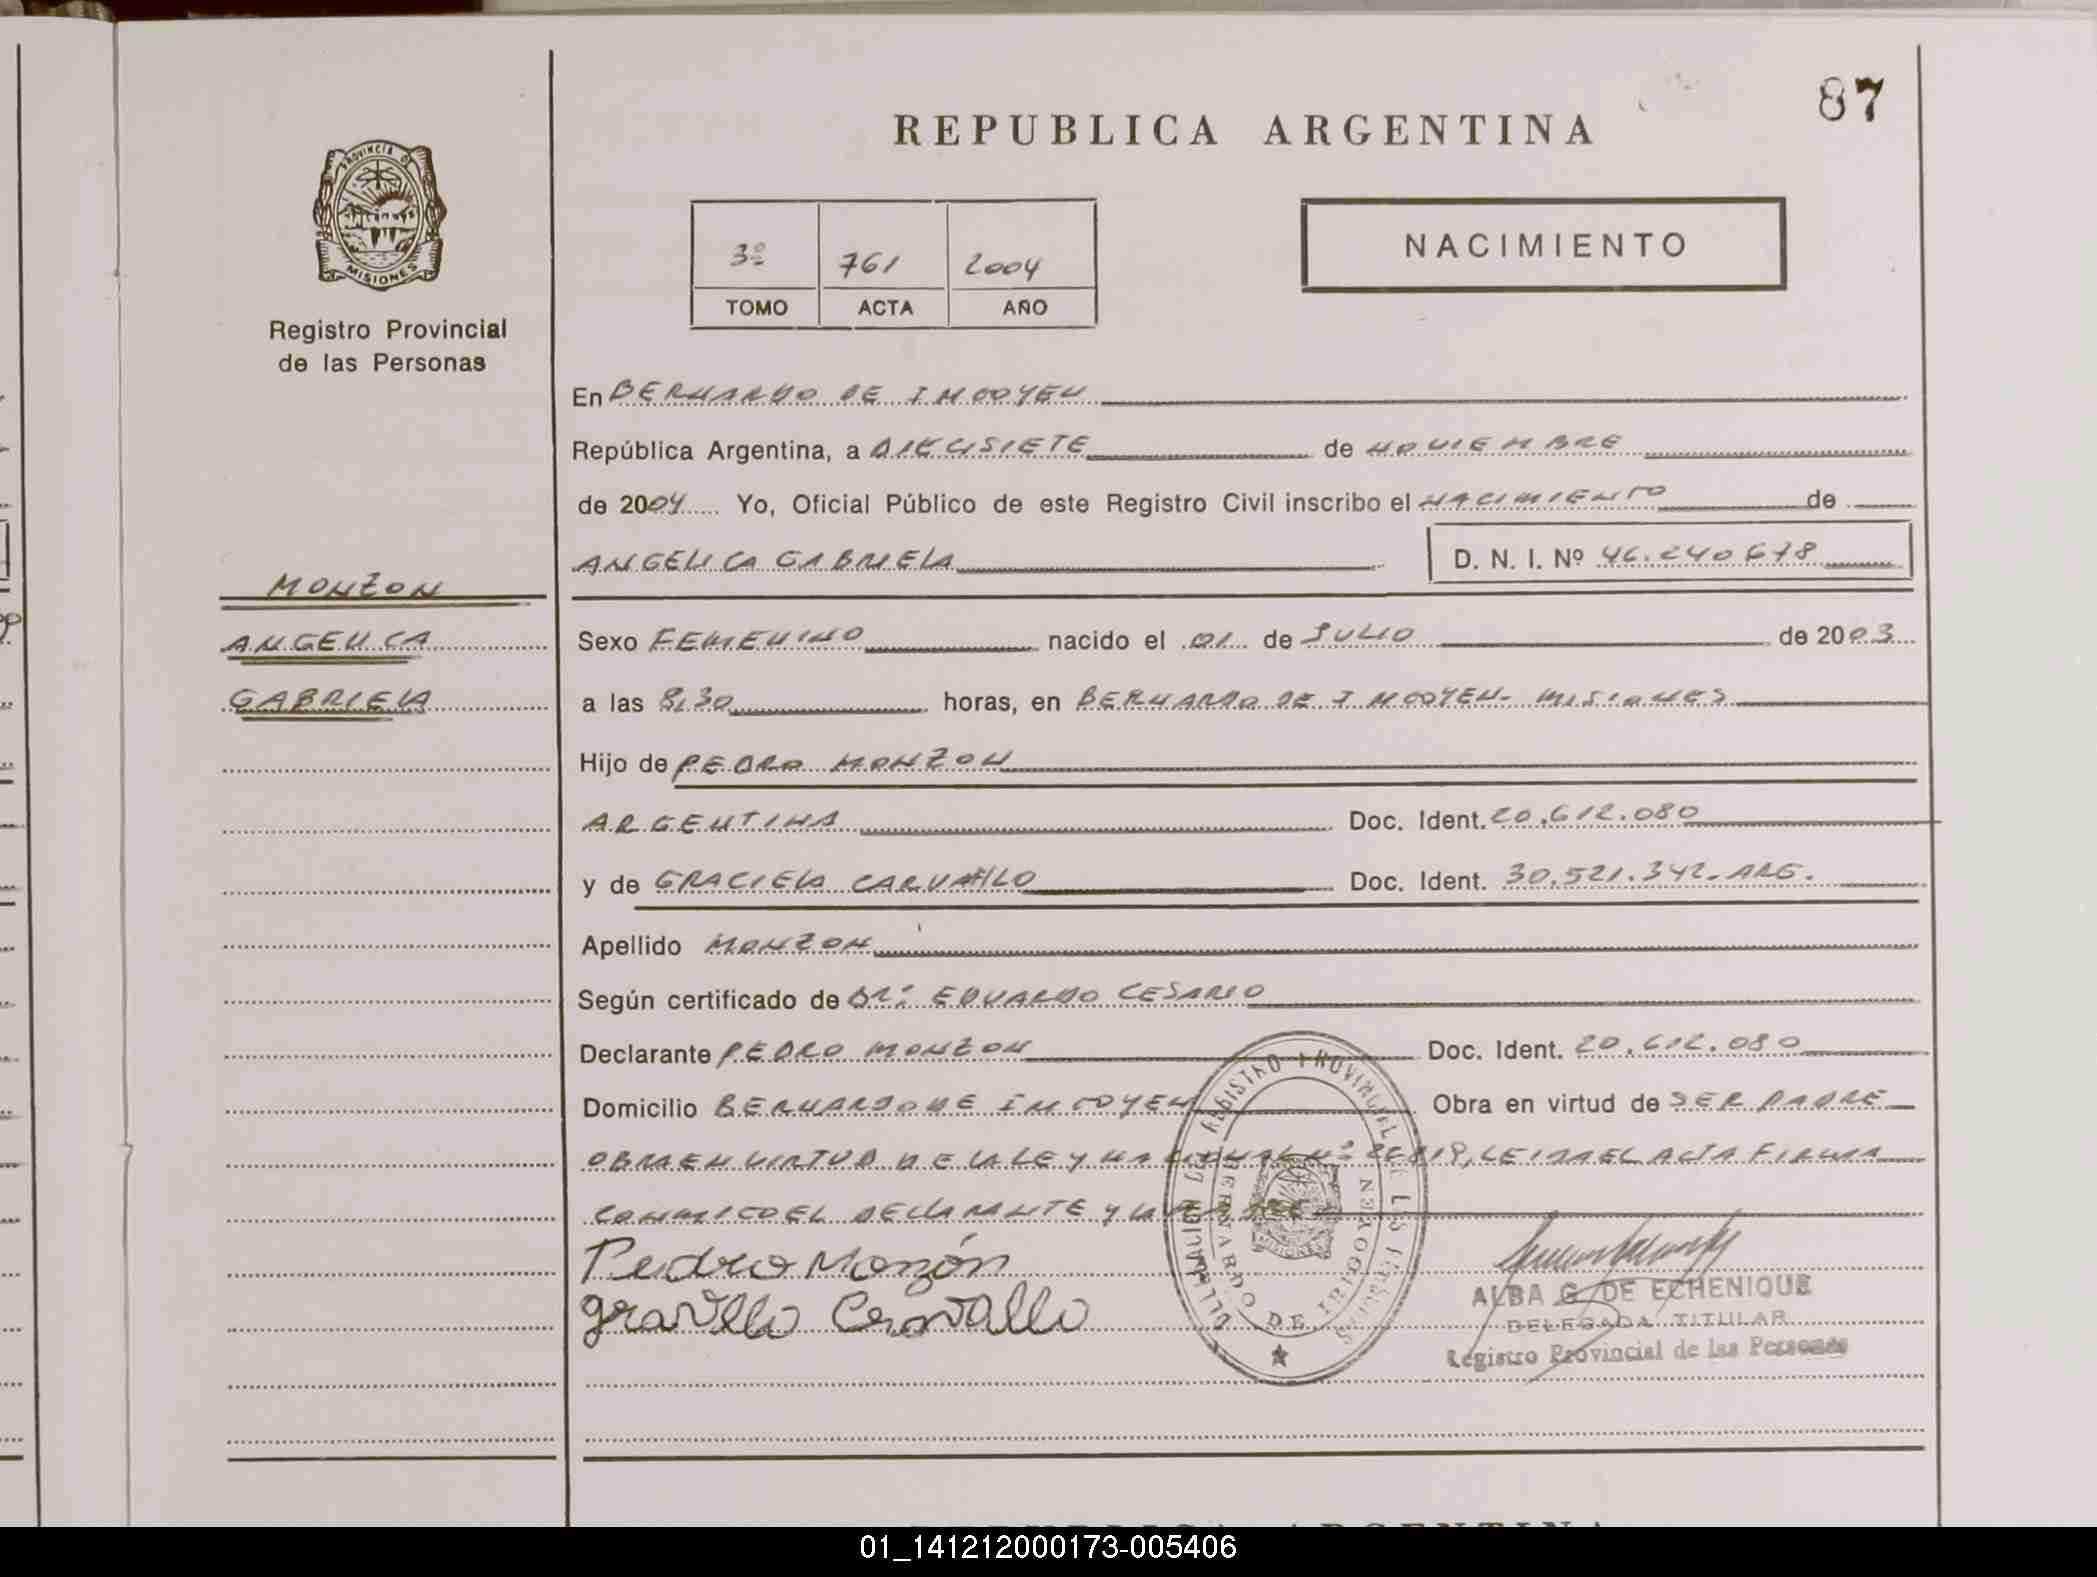 87
REPUBLICA ARGENTINA
PROVINCIA DE
MISIONES
3º 761 2004
TOMO ACTA AÑO
NACIMIENTO
Registro Provincial
de las Personas
En BERNARDO DE IRIGOYEN
República Argentina, a DIECISIETE de NOVIEMBRE
de 2004 Yo, Oficial Público de este Registro Civil inscribo el NACIMIENTO de
ANGELICA GABRIELA D. N. I. Nº 46.240.678
MONZON
ANGELICA
GABRIELA
Sexo FEMENINO nacido el 01 de JULIO de 2003
a las 8,30 horas, en BERNARDO DE IRIGOYEN- MISIONES
Hijo de PEDRO MONZON
ARGENTINA Doc. Ident. 20.612.080
y de GRACIELA CARVALLO Doc. Ident. 30.521.342. ARG.
Apellido MONZON
Según certificado de DR: EDUARDO CESARIO
Declarante PEDRO MONZON Doc. Ident. 20.612.080
Domicilio BERNARDO DE IRIGOYEN Obra en virtud de SER PADRE
OBRA EN VIRTUD DE LA LEY NACIONAL Nº LEIDA EL ACTA FIRMA
CONMIGO EL DECLARANTE Y LA MADRE
Pedro Monzón
Carvallo
REGISTRO PROVINCIAL DE LAS
BERNARDO DE IRIGOYEN
MISIONES
ALBA G. DE ECHENIQUE
DELEGADA TITULAR
Registro Provincial de las Personas
REPUBLICA ARGENTINA
01_141212000173-005406